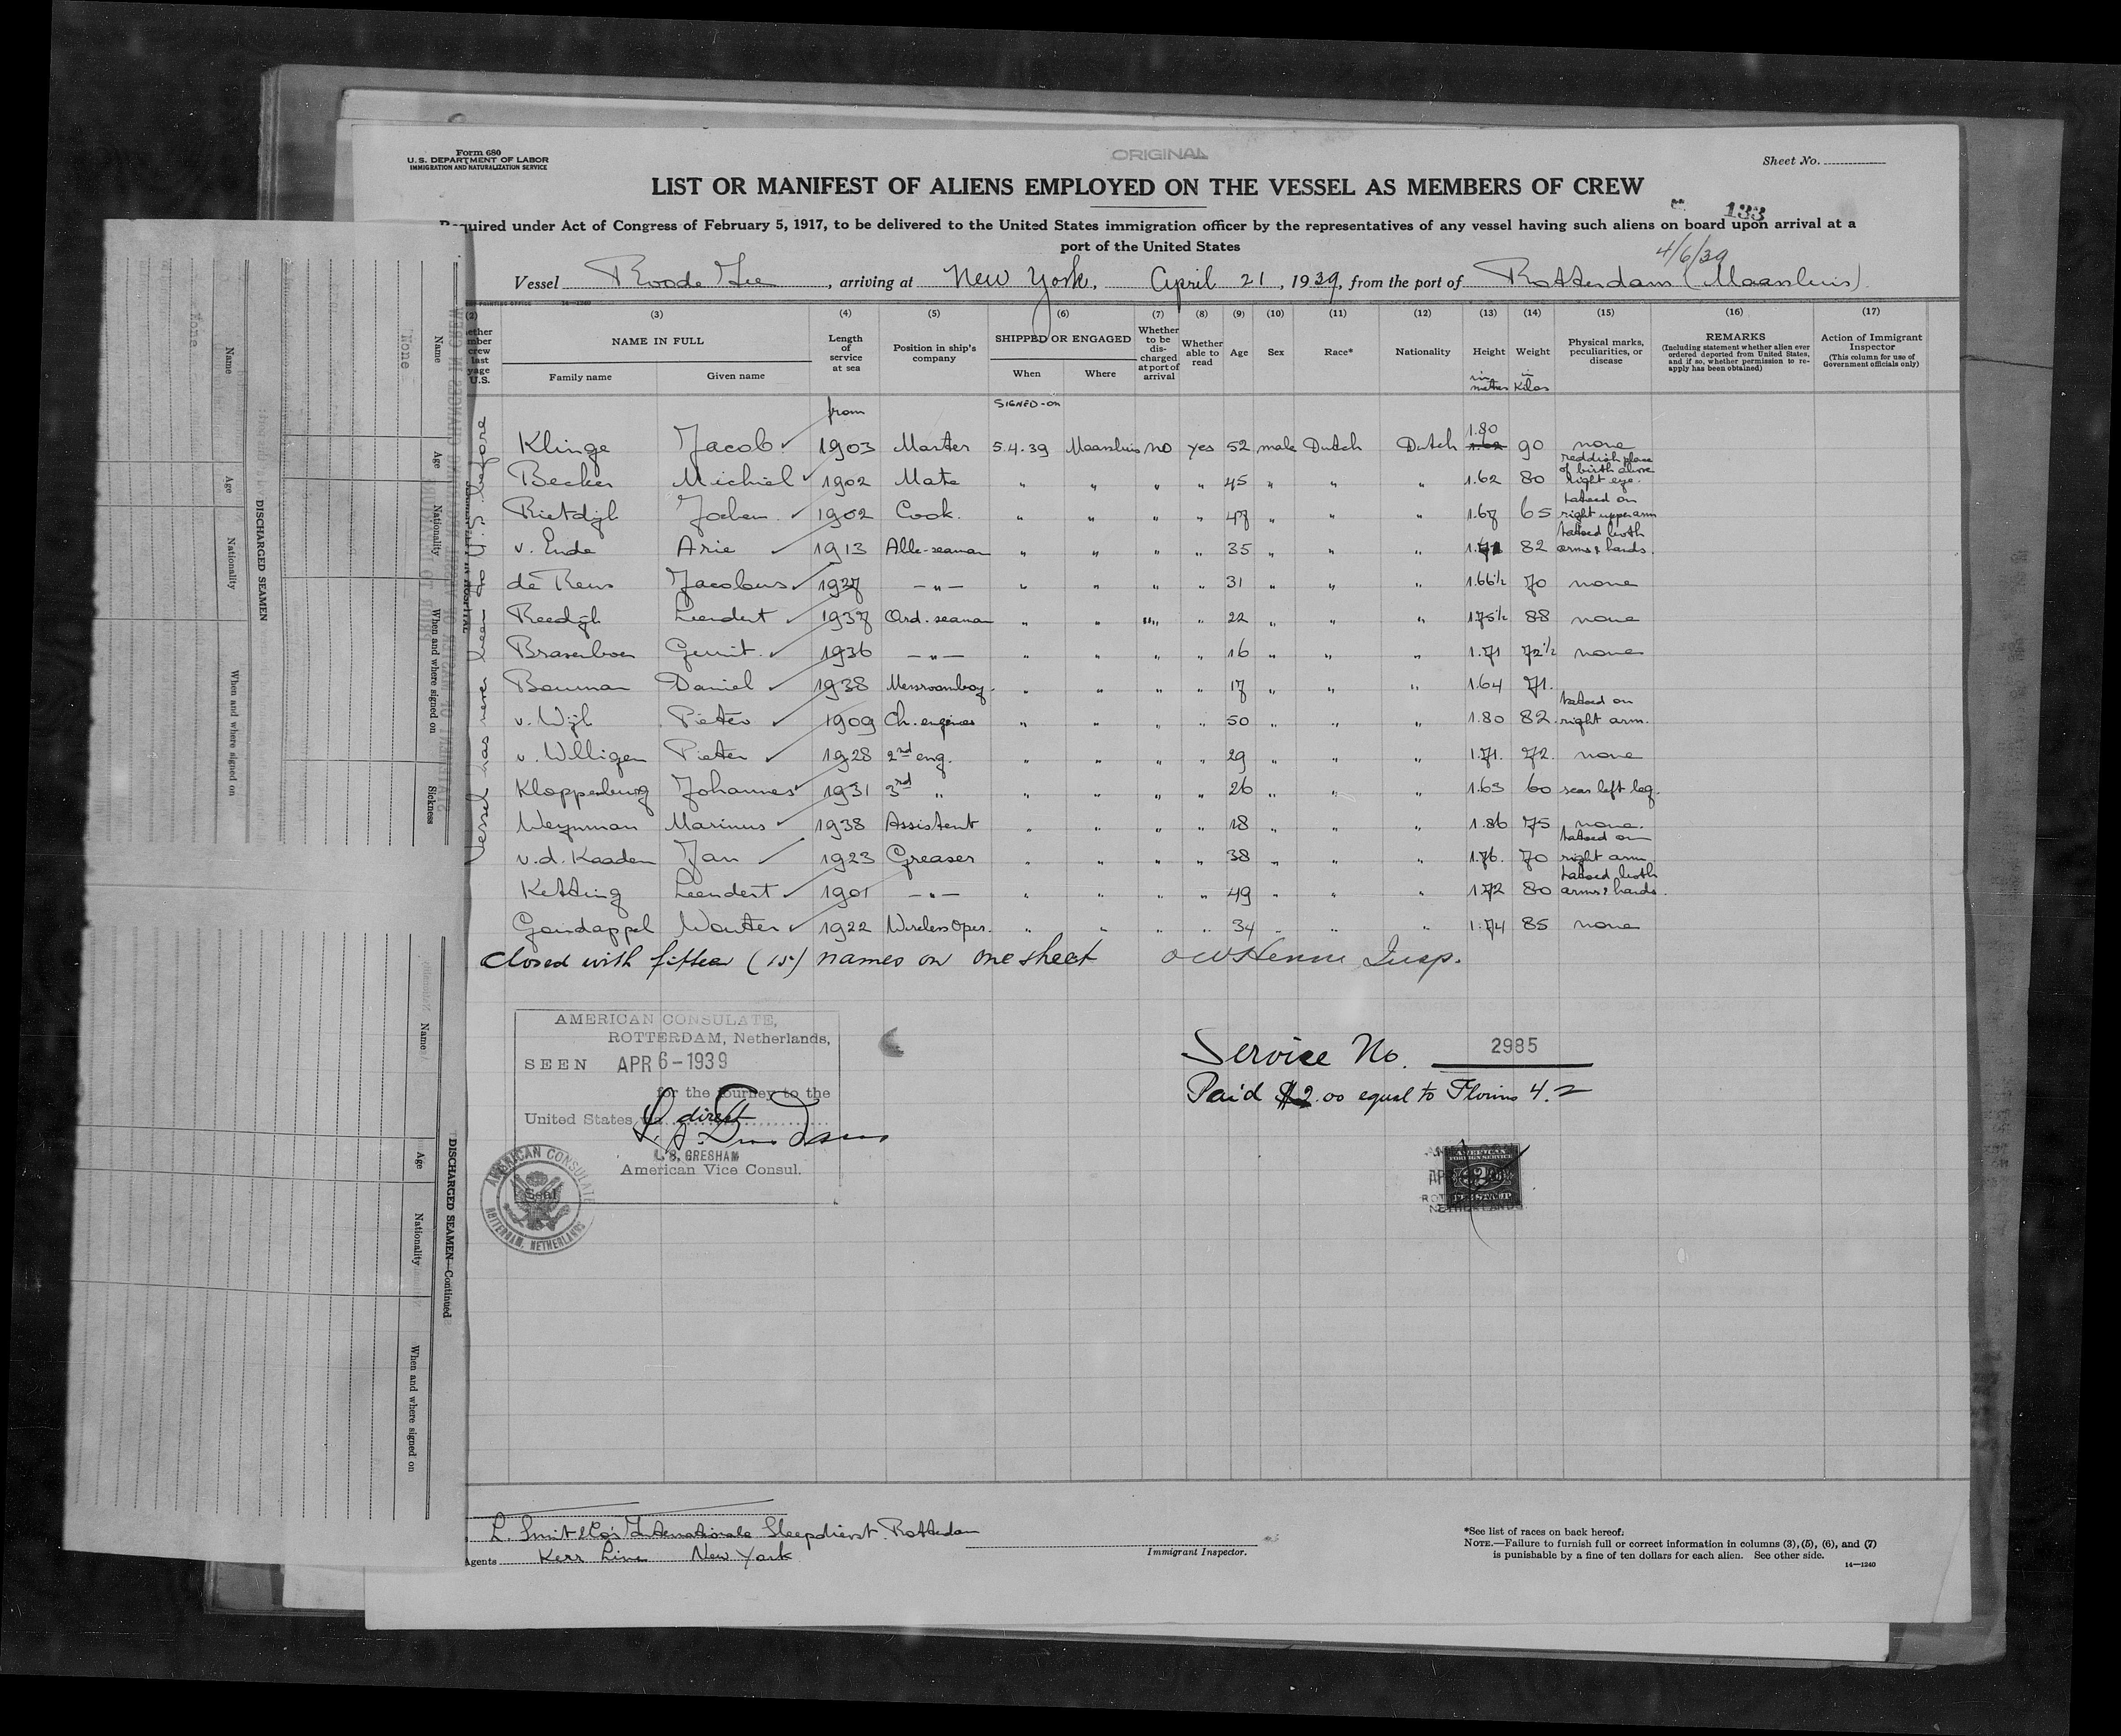 Form 680
U.S. DEPARTMENT OF LABOR
IMMIGRATION AND NATURALIZATION SERVICE
ORIGINAL
Sheet No.
LIST OR MANIFEST OF ALIENS EMPLOYED ON THE VESSEL AS MEMBERS OF CREW
133
Required under Act of Congress of February 5, 1917, to be delivered to the United States immigration officer by the representatives of any vessel having such aliens on board upon arrival at a
port of the United States
4/6/39
Vessel Roode Zee, arriving at New York, April 21, 1939, from the port of Rotterdam (Maassluis)
(2) (3) (4) (5) (6) (7) (8) (9) (10) (11) (12) (13) (14) (15) (16) (17)
NAME IN FULL
Family name Given name
Length of service at sea
Position in ship's company
SHIPPED OR ENGAGED
When Where
Whether to be discharged at port of arrival
Whether able to read
Age
Sex
Race*
Nationality
Height in meters
Weight in Kilos
Physical marks, peculiarities, or disease
REMARKS
(Including statement whether alien ever ordered deported from United States, and if so, whether permission to reapply has been obtained)
Action of Immigrant Inspector
(This column for use of Government officials only)
from SIGNED-on
Klinge Jacob 1903 Master 5.4.39 Maassluis no yes 52 male Dutch Dutch 1.80 90 none
Becker Michiel 1902 Mate " " " " 45 " " " 1.62 80 reddish place of birth above right eye.
Rietdijk Jochem 1902 Cook. " " " " 47 " " " 1.67 65 tatoed on right upperarm
v. Ende Arie 1913 Able-seaman " " " " 35 " " " 82 tatoed both arms & hands.
de Reus Jacobus 1927 -"- " " " " 31 " " " 1.66½ 70 none
Reedijk Leendert 1937 Ord. seaman " " " " 22 " " " 1.75½ 88 none
Gerrit 1936 -"- " " " " 16 " " " 1.71 72½ none
Bouman Daniel 1938 Messroomboy. " " " " 17 " " " 1.64 71.
v. Wijk Pieter 1909 Ch. engineer " " " " 50 " " " 1.80 82. tatoed on right arm.
v. Willigen Pieter 1928 2nd eng. " " " " 29 " " " 1.71. 72. none
Kloppenburg Johannes 1931 3rd " " " " " 26 " " " 1.63 60 scar left leg.
Weynman Marinus 1938 Assistent " " " " 18 " " " 1.86 75 none.
v.d. Kaaden Jan 1923 Greaser " " " " 38 " " " 1.76. 70 tatoed on right arm
Ketting Leendert 1901 -"- " " " " 49 " " " 1.72 80 tatoed both arms & hands.
Wouter 1922 Wireless Oper. " " " " 34 " " " 1.74 85 none
Vessel has never been to U.S. before
closed with fifteen (15) names on one sheet Insp.
AMERICAN CONSULATE,
ROTTERDAM, Netherlands,
SEEN APR 6-1939
for the journey to the
United States, via direct
L. S. GRESHAM
American Vice Consul.
AMERICAN CONSULATE
Seal
ROTTERDAM, NETHERLANDS
Service No. 2985
Paid $2.00 equal to Florins 4.-
AMERICAN
FOREIGN SERVICE
NETHERLANDS
L. Smit & Co's Internationale Sleepdienst Rotterdam
Agents Kerr Line New York
Immigrant Inspector.
*See list of races on back hereof.
NOTE.—Failure to furnish full or correct information in columns (3), (5), (6), and (7)
is punishable by a fine of ten dollars for each alien. See other side.
14—1240
DISCHARGED SEAMEN
Name Age Nationality When and where signed on
None
Name Age Nationality When and where signed on Sickness
None
DISCHARGED SEAMEN—Continued
Name Age Nationality When and where signed on